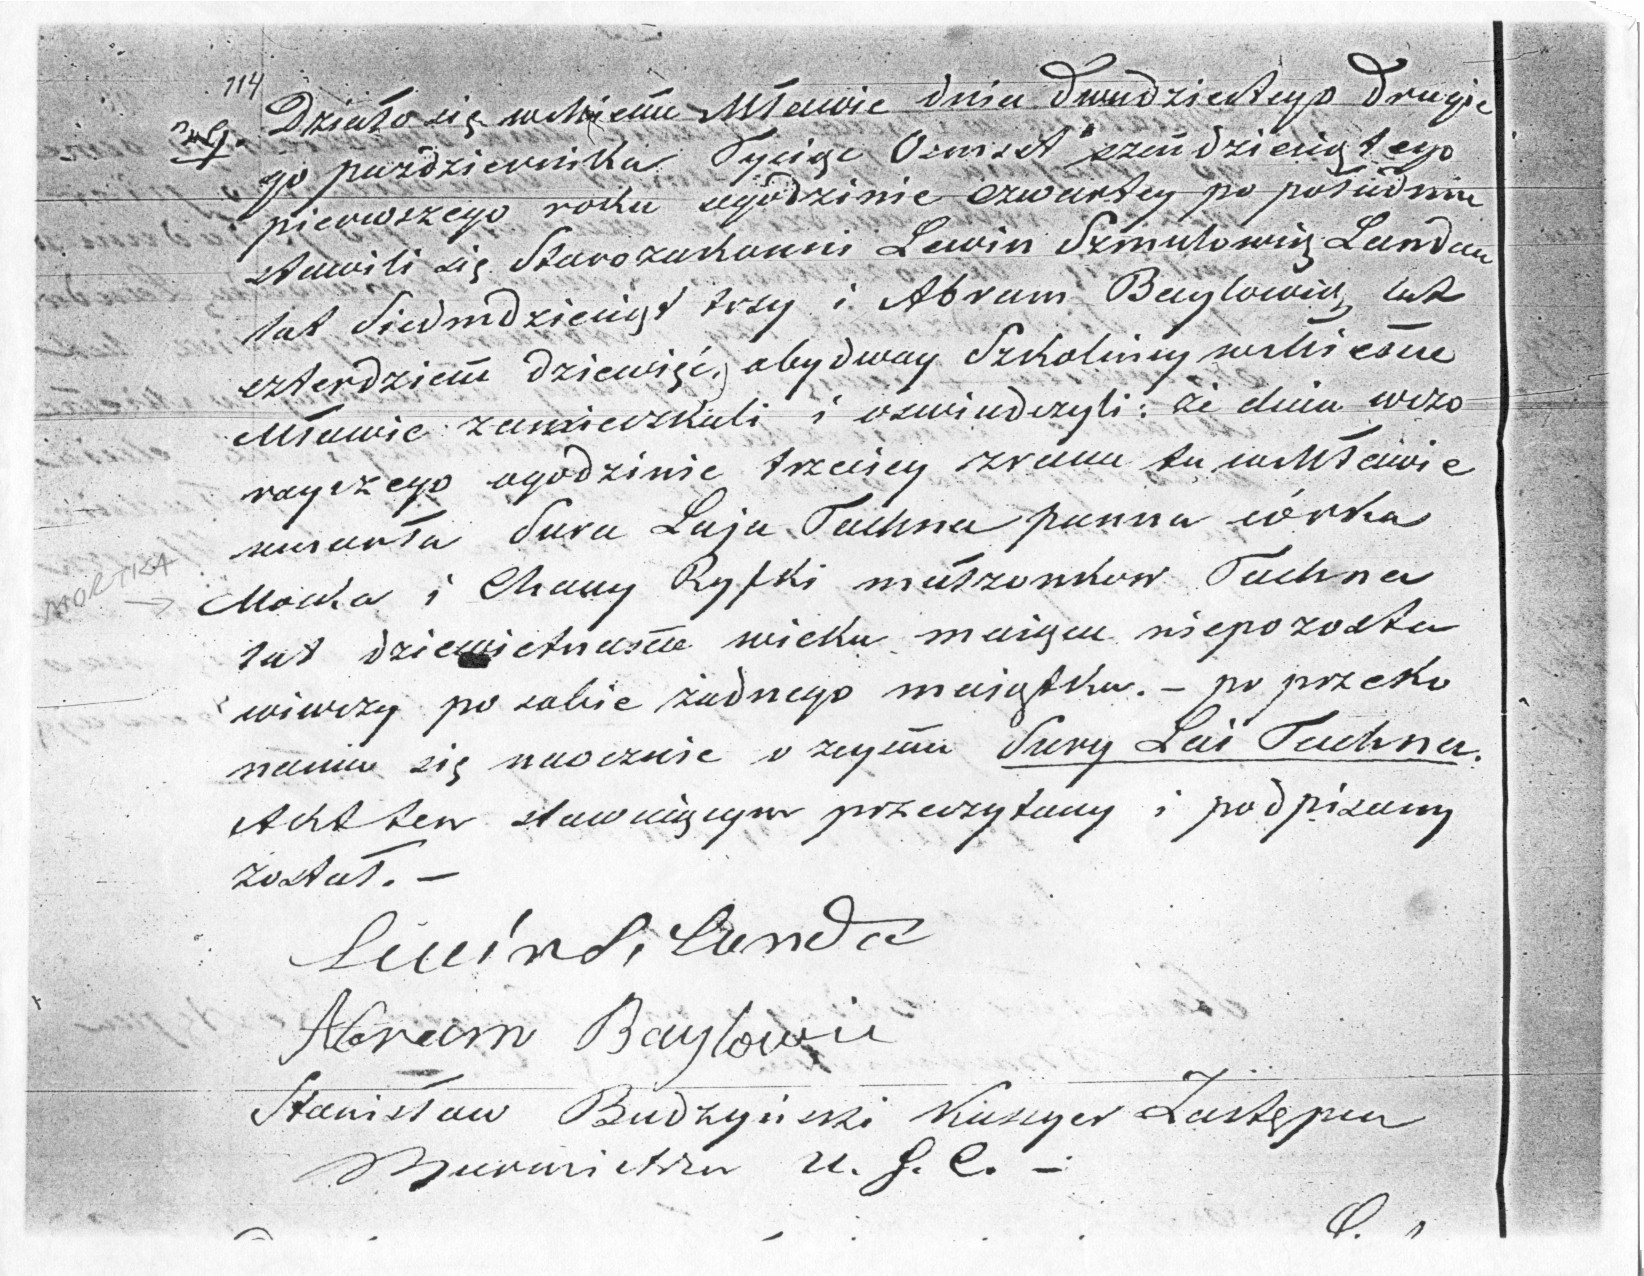 114
Działo się w Mieście Mławie dnia dwudziestego drugie
go pazdziernika Tysiąc Osmset sześćdziesiątego
pierwszego roku o godzinie czwartey po południu
stawili się Starozakonni Lewin Szmulowicz Landau
lat Siedmdziesiąt trzy i Abram Baylowicz lat
czterdzieści dziewięć, obydway Szkolnicy w Mieście
Mławie zamieszkali i oswiadczyli: że dnia wczo
rayszego o godzinie trzeciey z rana tu w Mławie
umarła Sura Laja Tachna panna córka
MORTKA →
Moska i Chany Ryfki małżonkow Tachna
lat dziewietnascie wieku maiąca niepozosta
wiwszy po sobie żadnego maiątku. – po przeko
naniu się naocznie o zeyściu Sury Lai Tachna.
Akt ten stawaiącym przeczytany i podpisany
został. –
Lewin S. Landa
Abram Baylowic
Stanisław Budzyński Kassyer Zastępca
Burmistrza U. S. C. –